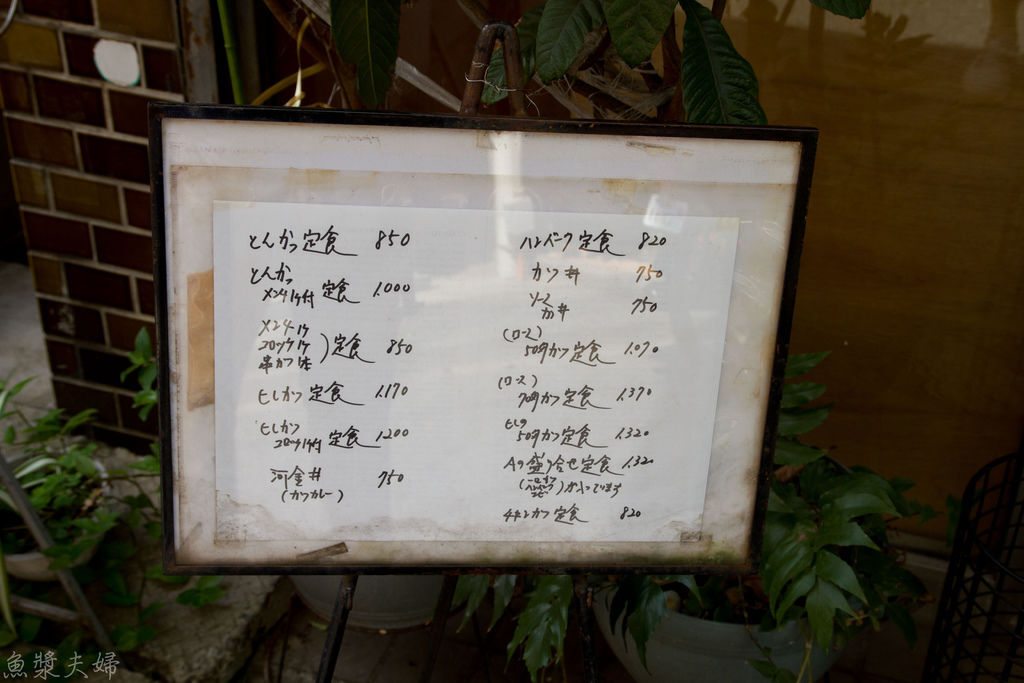 とんかつ定食 850
とんかつ
メンチ付 定食 1,000
メンチ1ケ
コロッケ1ケ
串カツ1本 )定食 850
ヒレかつ定食 1,170
ヒレかつ
コロッケ付 定食 1,200
河金丼 750
(カツカレー)
ハンバーグ定食 820
カツ丼 750
ソース
カツ丼 750
(ロース)
50匁カツ定食 1,070
(ロース)
70匁カツ定食 1,370
ヒレの
50匁カツ定食 1,320
Aの盛り合せ定食 1,320
が入っています
チキンカツ定食 820
魚漿夫婦